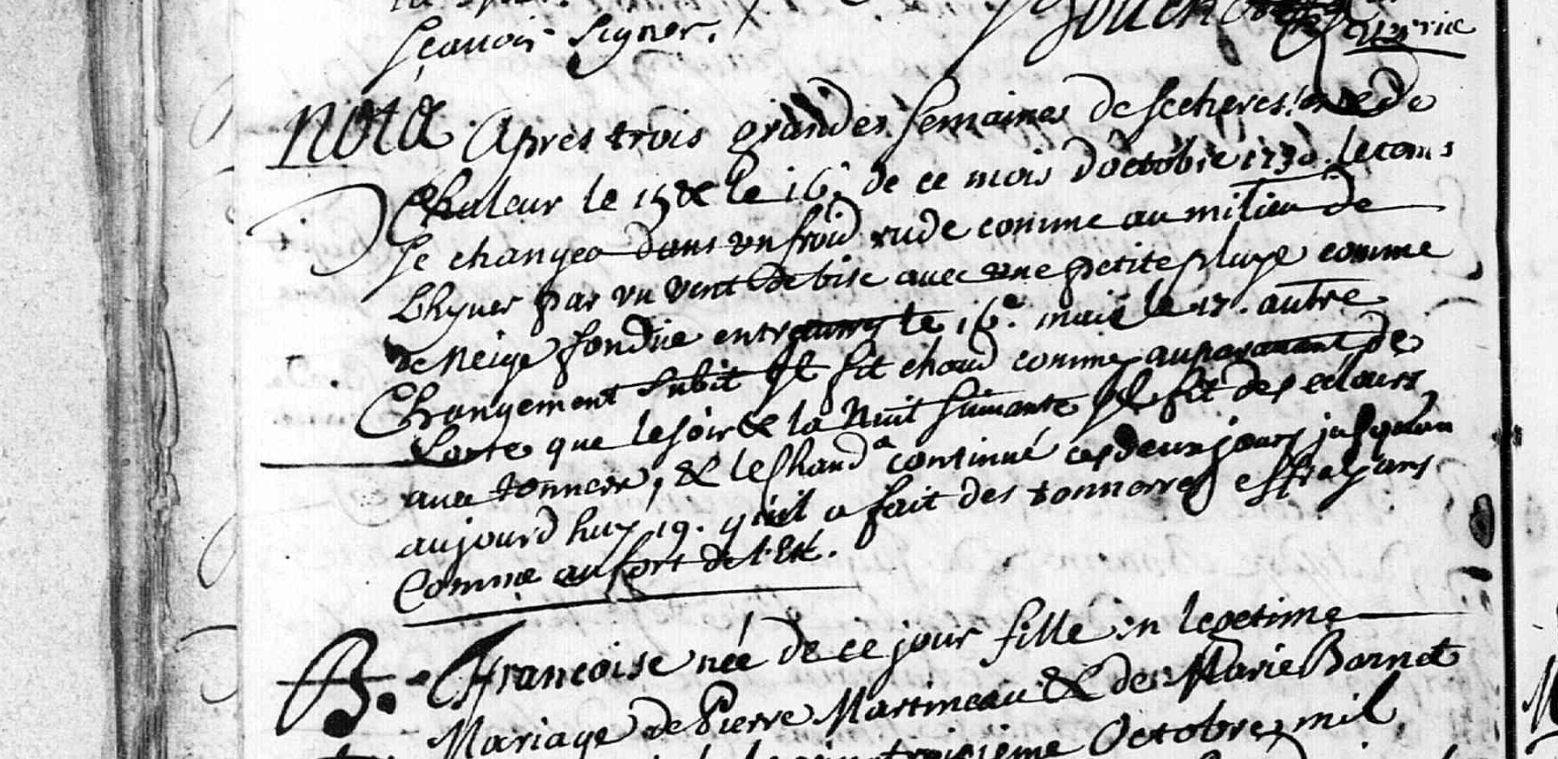 sçauoir signer.
nota Apres trois grandes semaines de secheresse et de
Chaleur le 15 & le 16. de ce mois d'octobre 1730. le tems
se changea dans un froid rude comme au milieu de
L'hyuer par un vent de bise auec une petite pluye comme
de neige fondue le 16.e mais le 17. autre
Changement subit Il fit chaud comme auparauant de
sorte que le soir & la Nuit suiuante Il fit des eclairs
auec tonnerre, & le Chaud a continué ces deux jours jusqu'au
aujourd'huy 19. qu'il a fait des tonnerres effrayans
Comme au fort de l'Eté.
B. Francoise née de ce jour fille en legetime
Mariage de Pierre Martineau & de Marie Bornet
troisieme Octobre mil